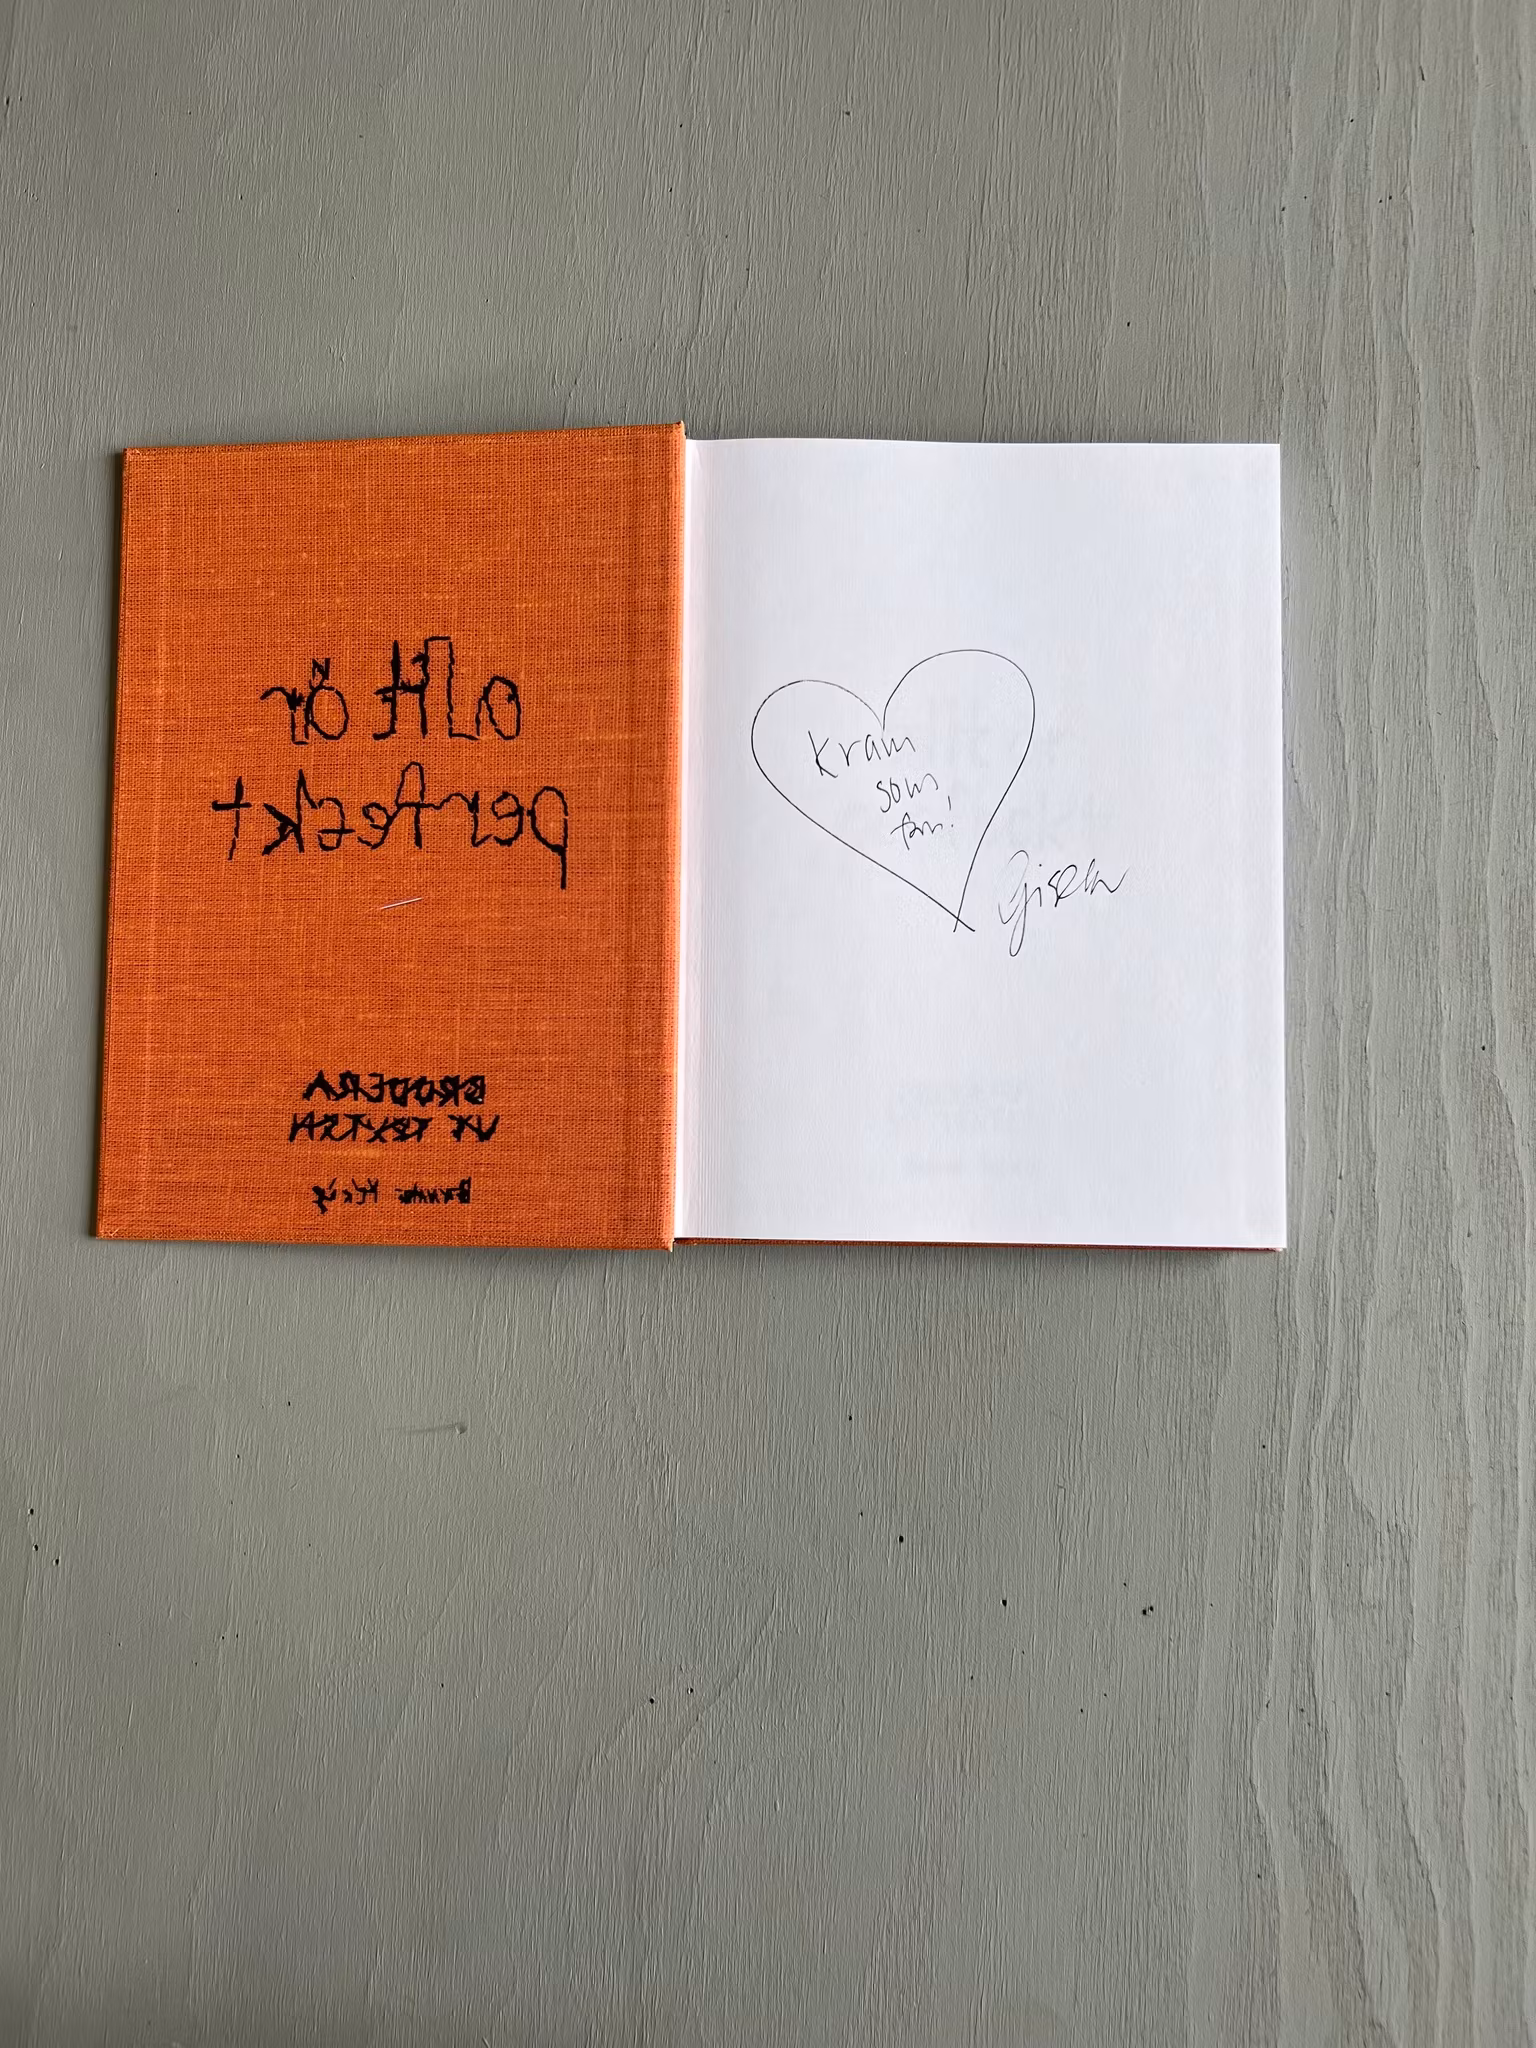 allt är
perfekt
BRODERA
UR TEXTEN
Kram
som
fan!
Gisela